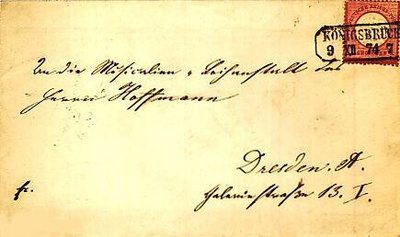 KÖNIGSBRÜCK
9 XII. 74. 7
An die Musicalien-Leihanstalt des
Herrn Hoffmann
Dresden. A.
fr.
Galeriestraße 13. I.